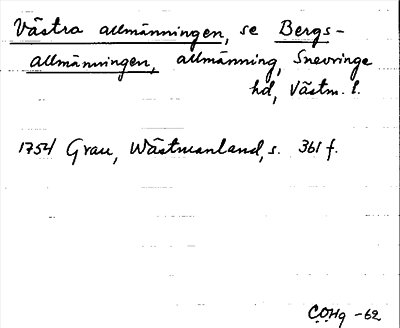 Västra allmänningen, se Bergs-
allmänningen, allmänning, Snevringe
hd, Västm. l.
1754 Grau, Wästmanland, s. 361 f.
COHg -62